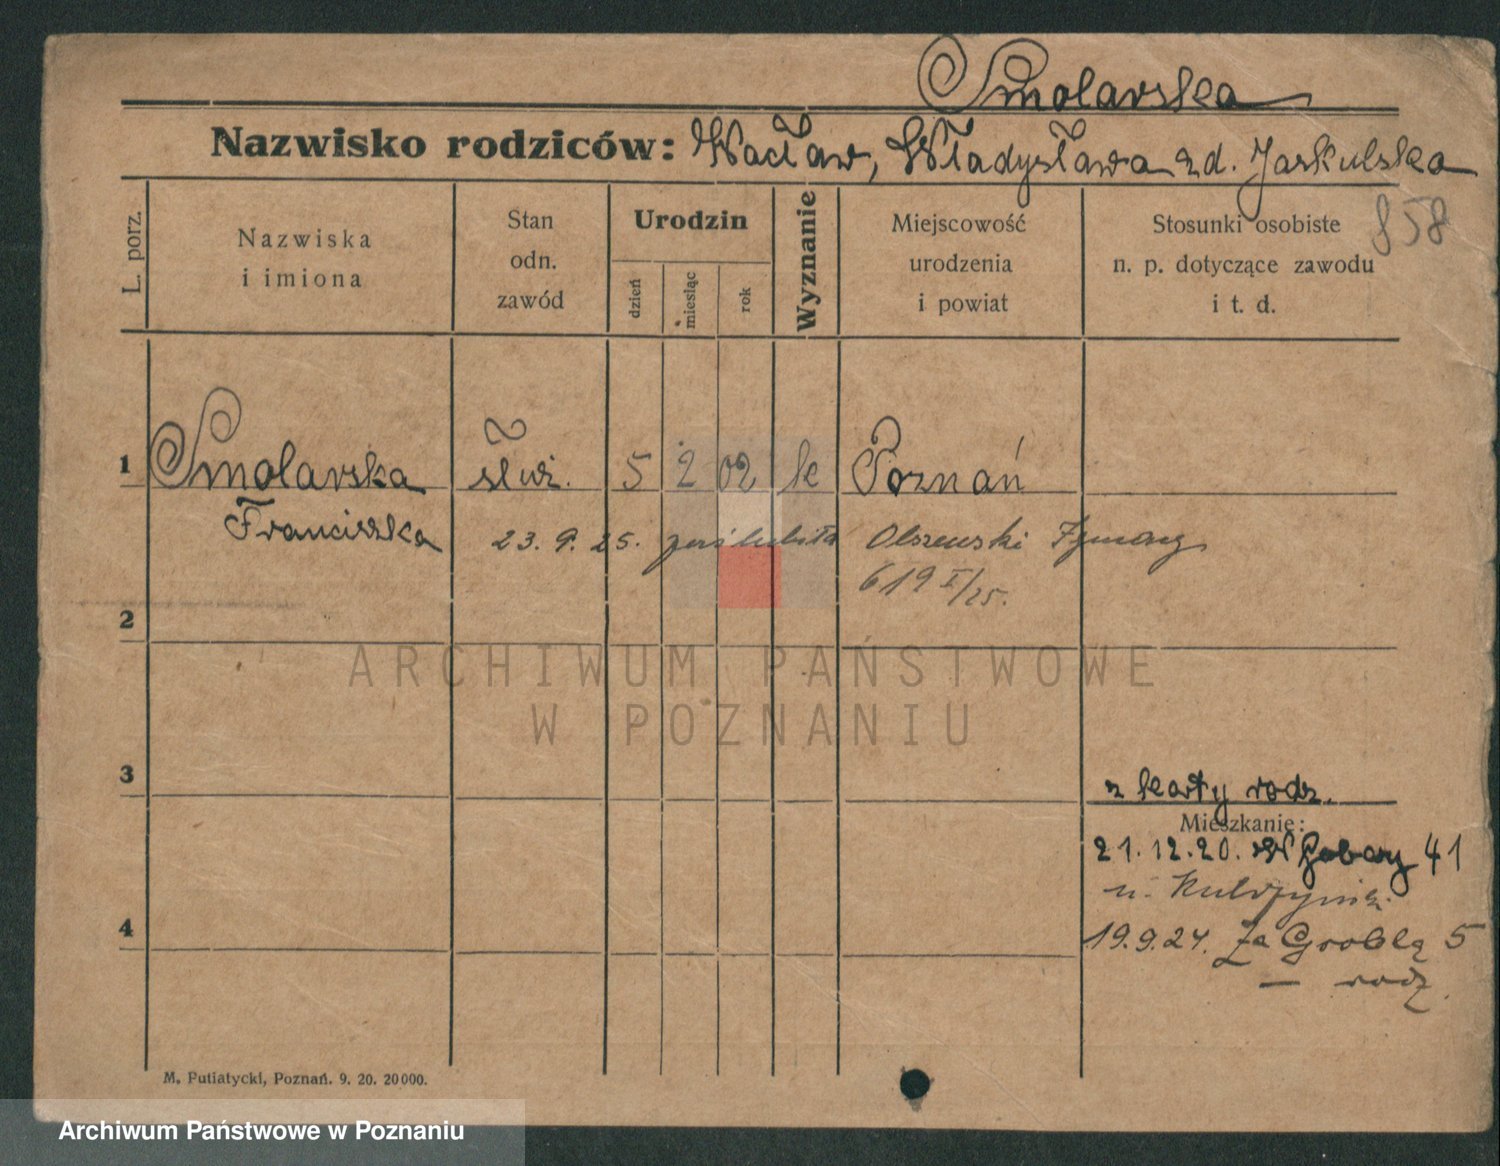 Smolarska
Nazwisko rodziców: Wacław, Władysława z d. Jaskulska
858
L. porz.
Nazwiska
i imiona
Stan
odn.
zawód
Urodzin
dzień
miesiąc
rok
Wyznanie
Miejscowość
urodzenia
i powiat
Stosunki osobiste
n. p. dotyczące zawodu
i t. d.
1 Smolarska służ. 5 2 02 k Poznań
Franciszka
23. 9. 25. poślubiła Olszewski
619 I/25.
2
ARCHIWUM PAŃSTWOWE
W POZNANIU
3
z karty rodz.
Mieszkanie:
21.12.20. W Garbary 41
u.
4
19.9.24. Za Groblą 5
— rodz.
M. Putiatycki, Poznań. 9. 20. 20000.
Archiwum Państwowe w Poznaniu